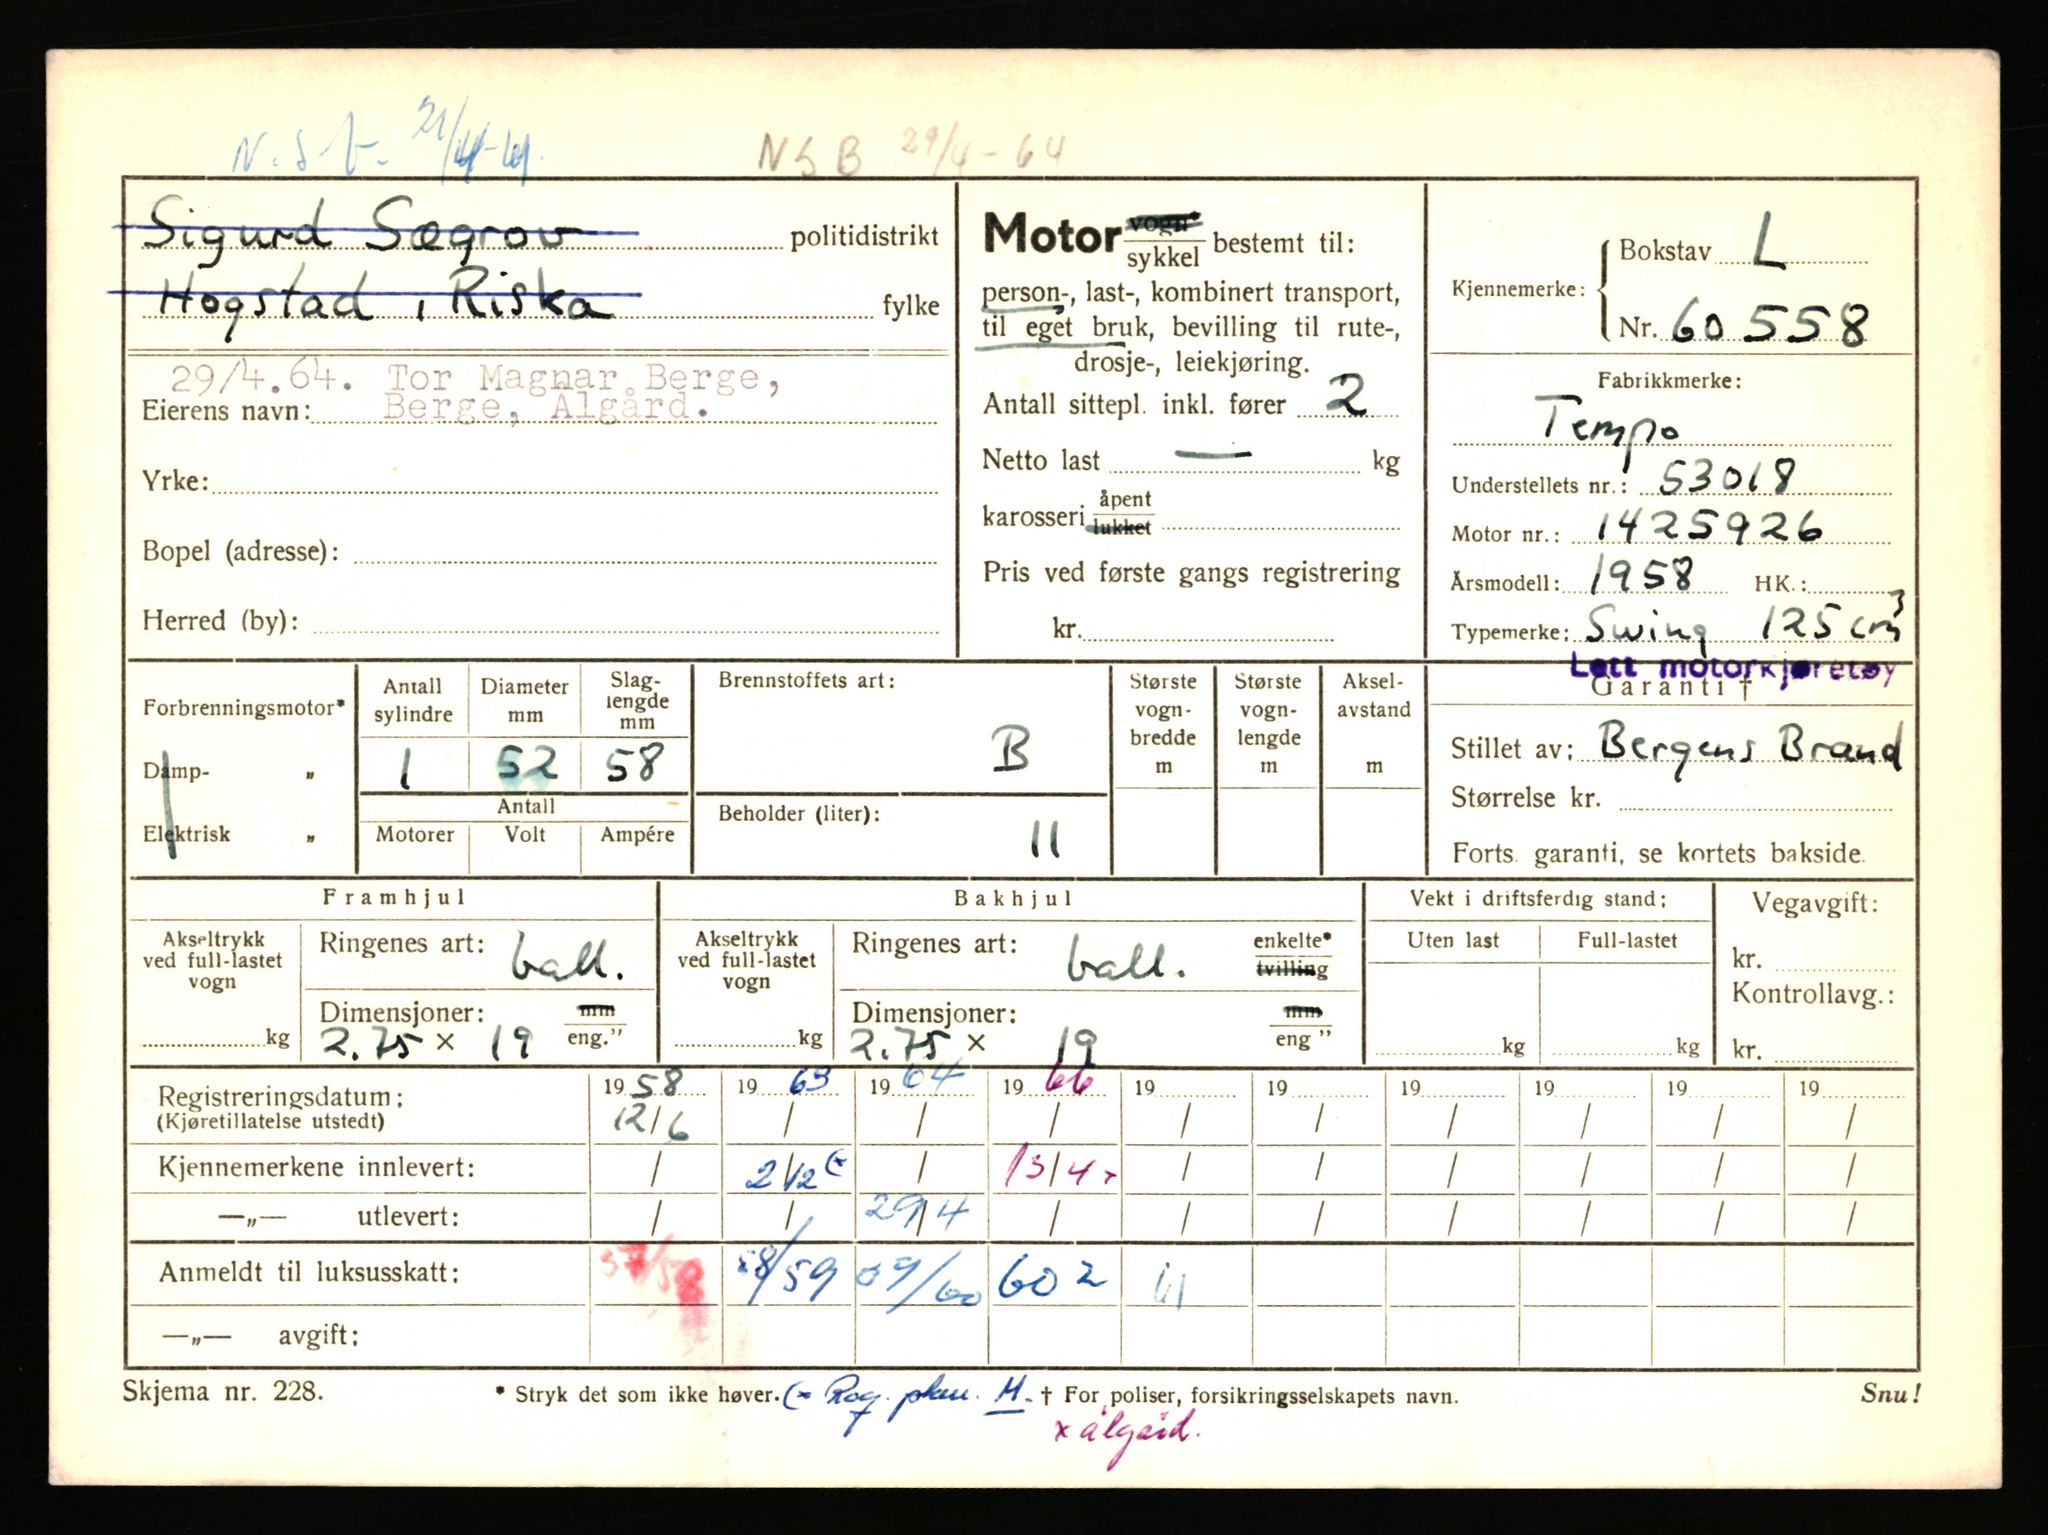 NSB 29/4-64
Sigurd Sægrov politidistrikt
Hogstad, Riska fylke
29/4.64. Tor Magnar Berge,
Eierens navn: Berge, Ålgård.
Yrke:
Bopel (adresse):
Herred (by):
Motor vogn*
sykkel bestemt til:
person-, last-, kombinert transport,
til eget bruk, bevilling til rute-,
drosje-, leiekjøring.
Antall sittepl. inkl. fører 2
Netto last — kg
karosseri åpent
lukket
Pris ved første gangs registrering
kr.
Kjennemerke: Bokstav L
Nr. 60558
Fabrikkmerke:
Tempo
Understellets nr.: 53018
Motor nr.: 1425926
Årsmodell: 1958 HK.:
Typemerke: Swing 125 cm3
Lett motorkjøretøy
Garanti †
Stillet av: Bergens Brand
Størrelse kr.
Forts. garanti, se kortets bakside.
Forbrenningsmotor*
Damp- „
Elektrisk „
Antall sylindre Diameter mm Slaglengde mm
1 52 58
Antall
Motorer Volt Ampére
Brennstoffets art:
B
Beholder (liter):
11
Største vogn-bredde m
Største vogn-lengde m
Aksel-avstand m
Framhjul
Akseltrykk ved full-lastet vogn
kg
Ringenes art: ball.
Dimensjoner: mm
2.75 × 19 eng.”
Bakhjul
Akseltrykk ved full-lastet vogn
kg
Ringenes art: ball. enkelte*
tvilling
Dimensjoner: mm
2.75 × 19 eng ”
Vekt i driftsferdig stand:
Uten last Full-lastet
kg kg
Vegavgift:
kr.
Kontrollavg.:
kr.
Registreringsdatum: 1958 1963 1964 1966 19 19 19 19 19 19
(Kjøretillatelse utstedt) 12/6 / / / / / / / / /
Kjennemerkene innlevert: / 2/12 (* / 13/4 × / / / / / /
—„— utlevert: / / 29/4 / / / / / / /
Anmeldt til luksusskatt: 57/58 58/59 59/60 60 2 61
—„— avgift:
Skjema nr. 228. * Stryk det som ikke høver. (* Rog. M. † For poliser, forsikringsselskapets navn. Snu!
× ålgård.